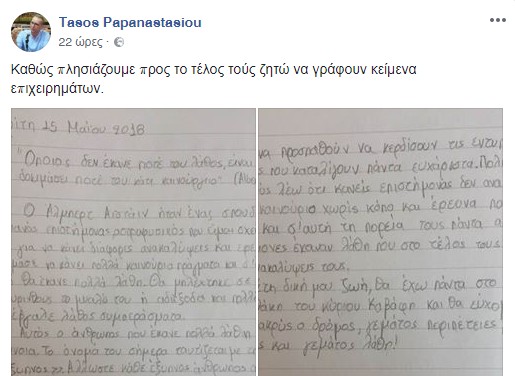 Tasos Papanastasiou
22 ώρες ·
Καθώς πλησιάζουμε προς το τέλος τούς ζητώ να γράφουν κείμενα
επιχειρημάτων.
ίτη 15 Μαΐου 2018
"Όποιος δεν έκανε ποτέ του λάθος, είναι
δοκιμάσει ποτέ του κάτι καινούργιο"
Ο Άλμπερτ Αϊστάιν ήταν ένας σπουδ
επιστήμονας που έχει
για να κάνει διάφορες ανακαλύψεις και
να κάνει πολλά καινούρια πράγματα και
θα έκανε πολλά λάθη. Θα μπλέχτηκε
το μυαλό του ή απέτυχε και πολλ
έβγαλε λάθος συμπεράσματα.
Αυτός ο άνθρωπος που έκανε πολλά λάθη
Το όνομα του σήμερα ταυτίζεται με
Άλλωστε κάθε έξυπνος άνθρωπος
να προσπαθούν να κερδίσουν τις εντυπ
του καταλήγουν πάντα ευχάριστα. Πολ
λέω ότι κανείς επιστήμονας δεν ανα
καινούριο χωρίς κόπο και έρευνα πο
και σ'αυτή τη πορεία τους πάντα
έκαναν λάθη που στο τέλος τους
ανακαλύψεις τους.
τη δική μου ζωή, θα έχω πάντα στο
του κύριου Καβάφη και θα εύχομ
μακρύς ο δρόμος, γεμάτος περιπέτειες
και γεμάτος λάθη!